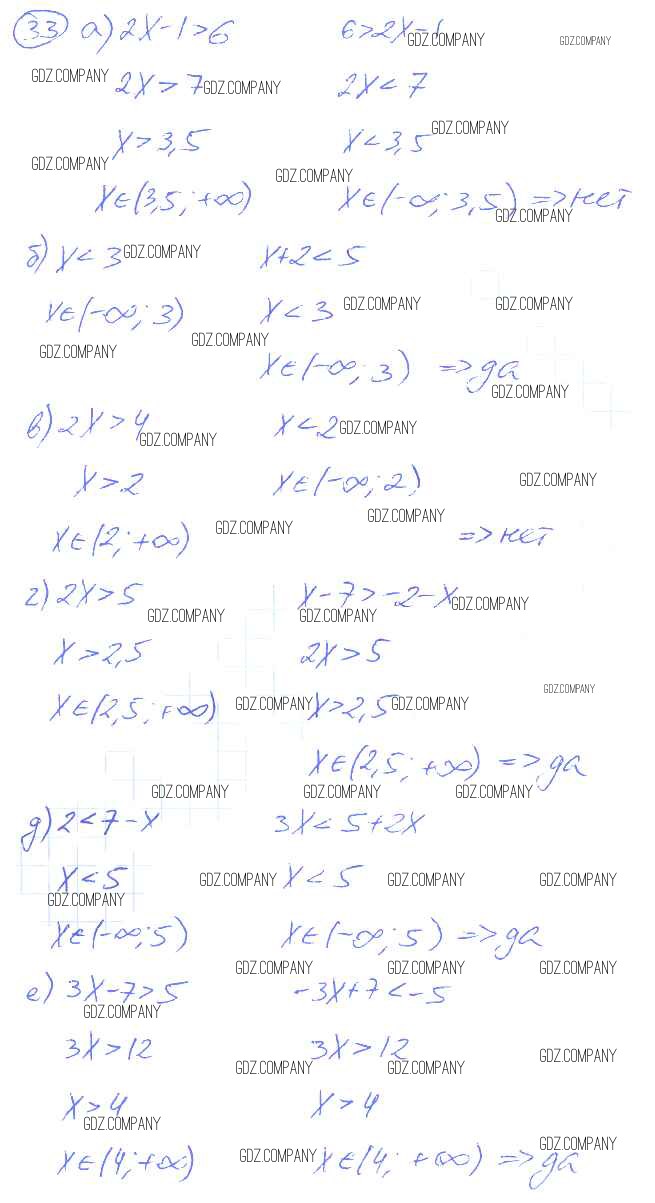 33 а) 2x-1>6 6>2x-1 GDZ.COMPANY GDZ.COMPANY
GDZ.COMPANY 2x>7 GDZ.COMPANY 2x<7
x>3,5 x<3,5 GDZ.COMPANY
GDZ.COMPANY GDZ.COMPANY
x∈(3,5; +∞) x∈(-∞; 3,5) => нет
GDZ.COMPANY
б) x<3 GDZ.COMPANY x+2<5
x∈(-∞; 3) x<3 GDZ.COMPANY GDZ.COMPANY
GDZ.COMPANY GDZ.COMPANY
x∈(-∞; 3) => да
GDZ.COMPANY
в) 2x>4 GDZ.COMPANY x<2 GDZ.COMPANY
x>2 x∈(-∞; 2) GDZ.COMPANY
GDZ.COMPANY
x∈(2; +∞) GDZ.COMPANY => нет
г) 2x>5 x-7>-2-x GDZ.COMPANY
GDZ.COMPANY GDZ.COMPANY
x>2,5 2x>5
GDZ.COMPANY
x∈(2,5; +∞) GDZ.COMPANY x>2,5 GDZ.COMPANY
x∈(2,5; +∞) => да
GDZ.COMPANY GDZ.COMPANY GDZ.COMPANY
д) 2<7-x 3x<5+2x
x<5 GDZ.COMPANY x<5 GDZ.COMPANY GDZ.COMPANY
GDZ.COMPANY
x∈(-∞; 5) x∈(-∞; 5) => да
GDZ.COMPANY GDZ.COMPANY GDZ.COMPANY
е) 3x-7>5 -3x+7<-5
GDZ.COMPANY
3x>12 3x>12 GDZ.COMPANY
GDZ.COMPANY GDZ.COMPANY
x>4 x>4
GDZ.COMPANY
GDZ.COMPANY
x∈(4; +∞) GDZ.COMPANY x∈(4; +∞) => да